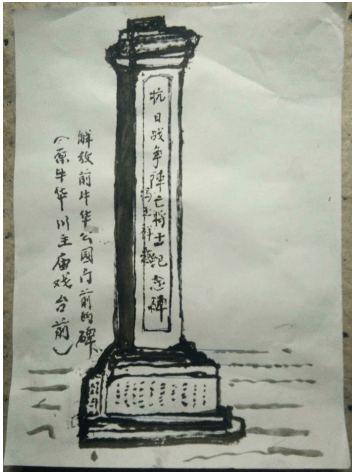 抗日战争陣亡将士纪念碑
冯玉祥题
解放前牛华公園门前的碑
（原牛华川主庙戏台前）